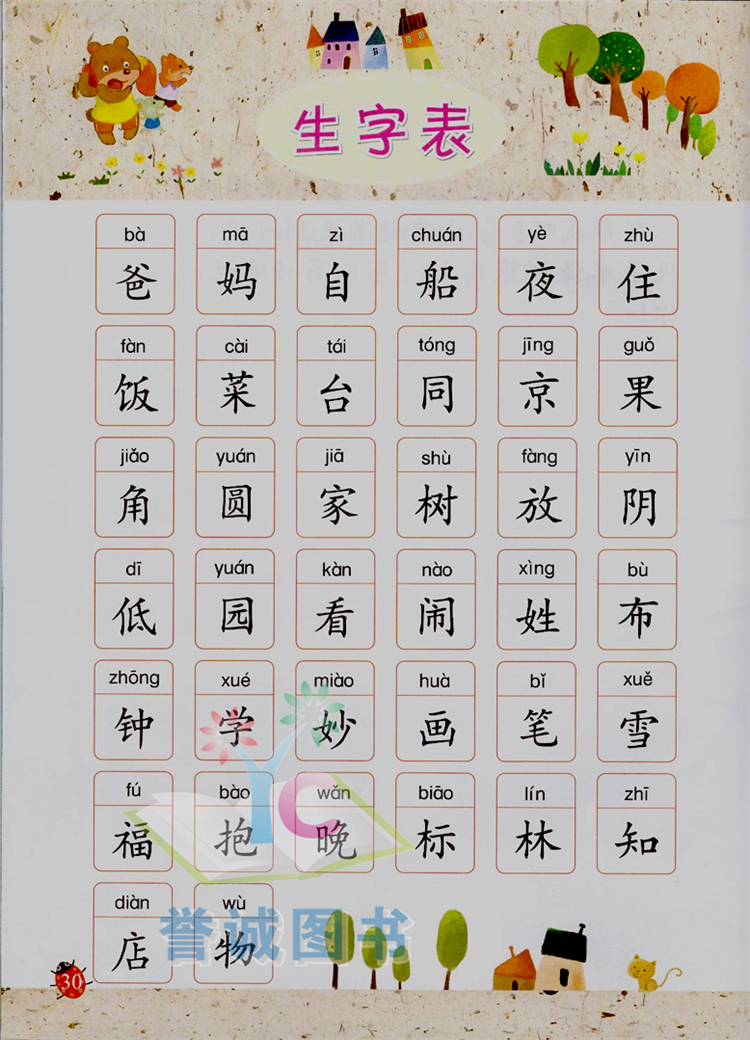 生字表
bà mā zì chuán yè zhù
爸 妈 自 船 夜 住
fàn cài tái tóng jīng guǒ
饭 菜 台 同 京 果
jiǎo yuán jiā shù fàng yīn
角 圆 家 树 放 阴
dī yuán kàn nào xìng bù
低 园 看 闹 姓 布
zhōng xué miào huà bǐ xuě
钟 学 妙 画 笔 雪
fú bào wǎn biāo lín zhī
福 抱 晚 标 林 知
diàn wù
店 物
YC
誉诚图书
30